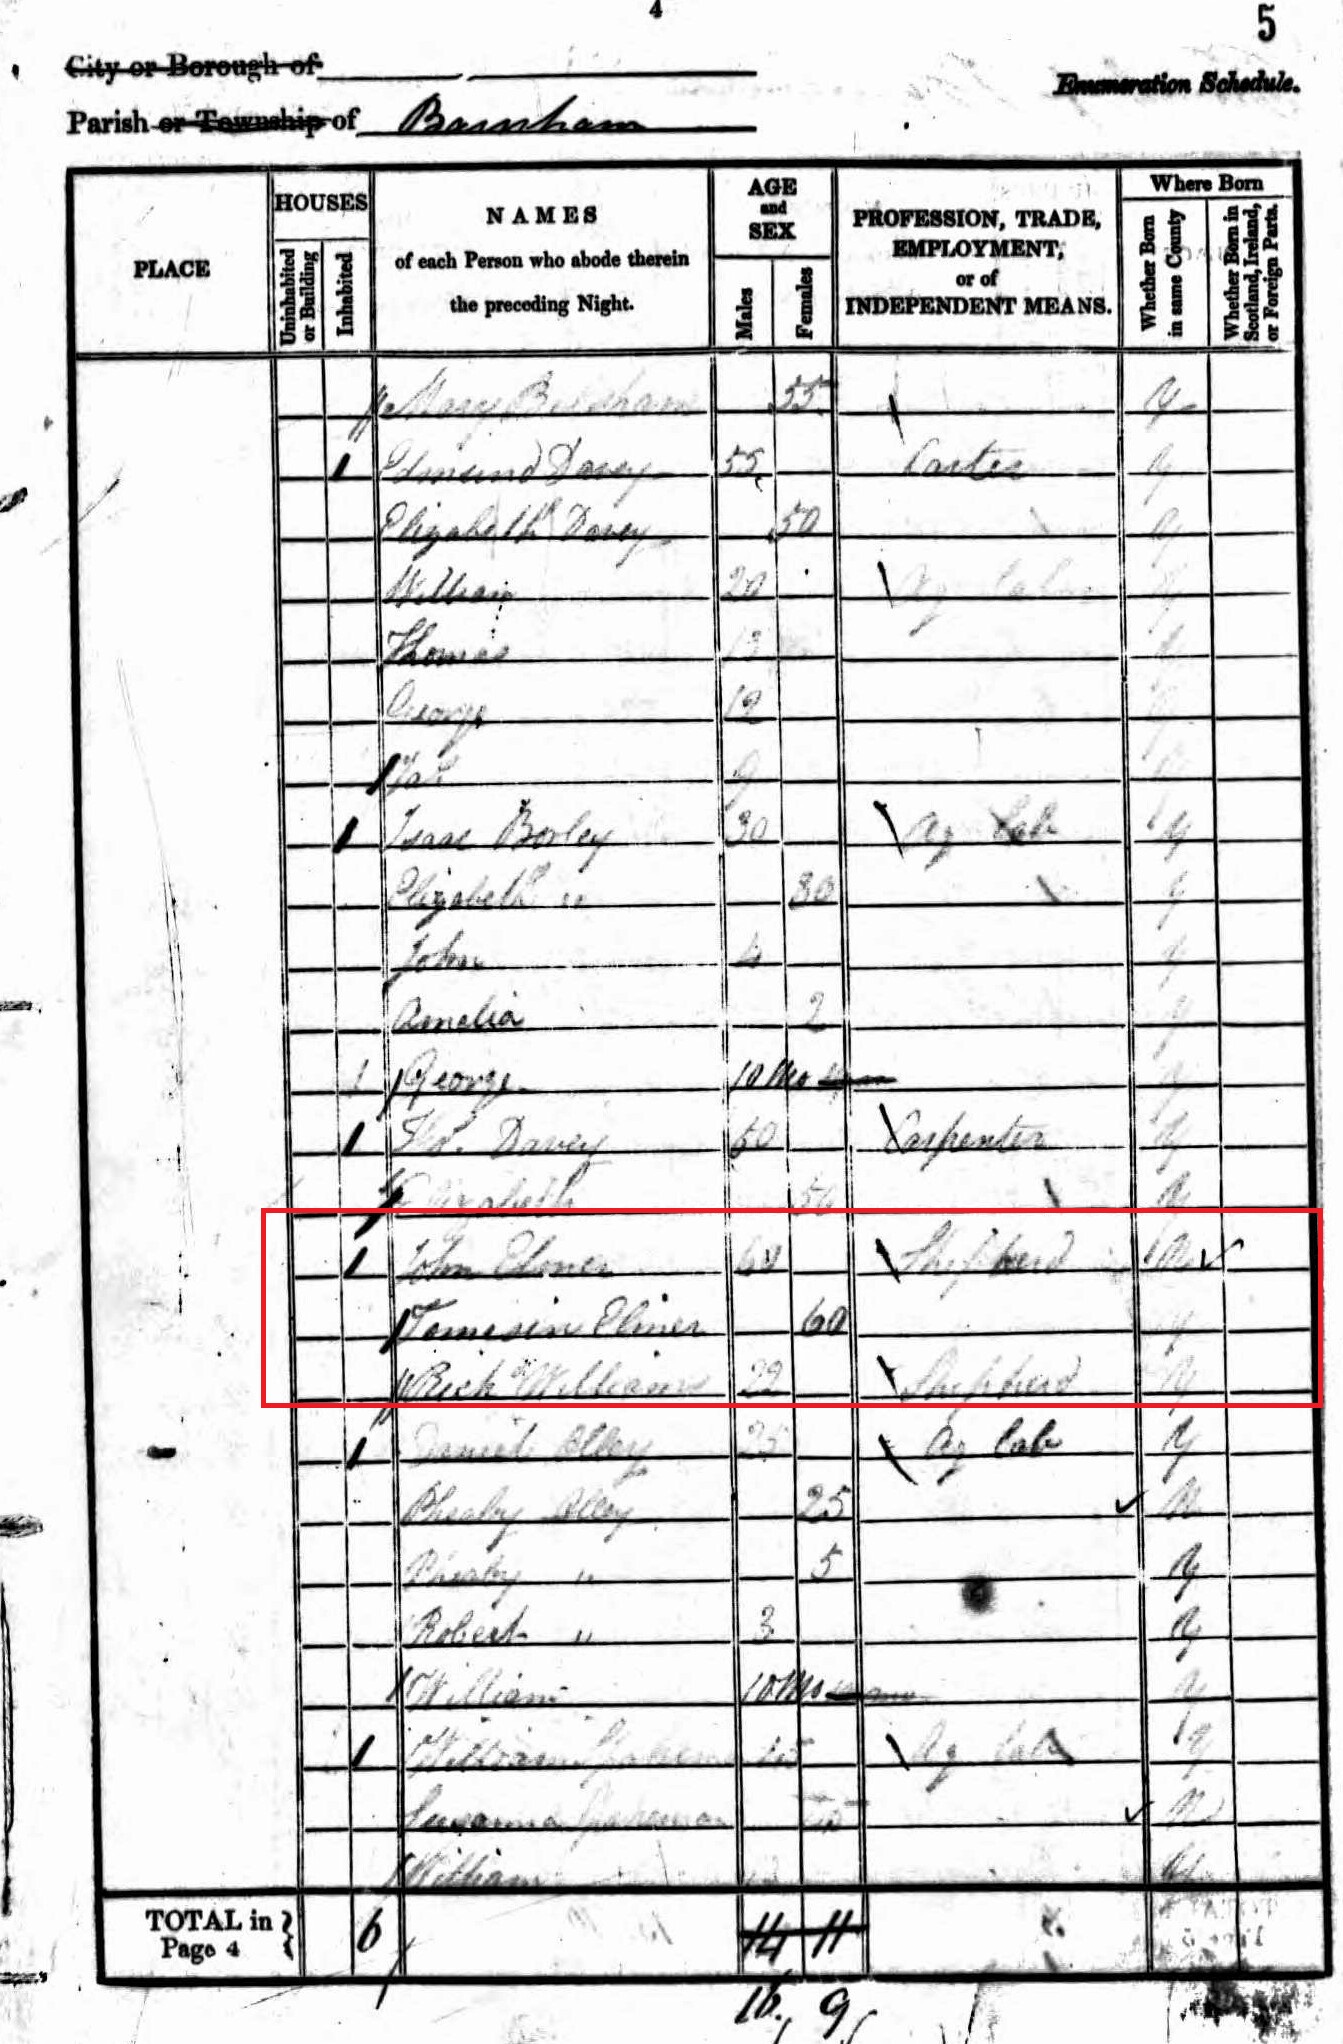 4
5
City or Borough of
Enumeration Schedule.
Parish or Township of Barnham
PLACE
HOUSES
Uninhabited or Building
Inhabited
NAMES
of each Person who abode therein
the preceding Night.
AGE
and
SEX
Males
Females
PROFESSION, TRADE,
EMPLOYMENT,
or of
INDEPENDENT MEANS.
Where Born
Whether Born in same County
Whether Born in Scotland, Ireland, or Foreign Parts.
Mary 55 Y
1 Edmund Davey 55 Y
Elizabeth Davey 50 Y
William 20 Ag Y
Thomas
George 12
9
1 Isaac Borley 30 Ag Lab Y
Elizabeth 30 Y
John 4 Y
Amelia 2 Y
1 George 10 Mo Y
1 Davey Carpenter Y
Elizabeth Y
1 John Elmer Shepherd N
Tomasin Elmer 60 Y
Richd Williams 22 Shepherd Y
1 Daniel Olley 25 Ag Lab Y
Pheaby Olley 25 N
Pheaby " 5 Y
Robert " 3 Y
William 10 Mo Y
1 William Ag Lab Y
Susanna N
William
TOTAL in
Page 4
6 14 11
16 9